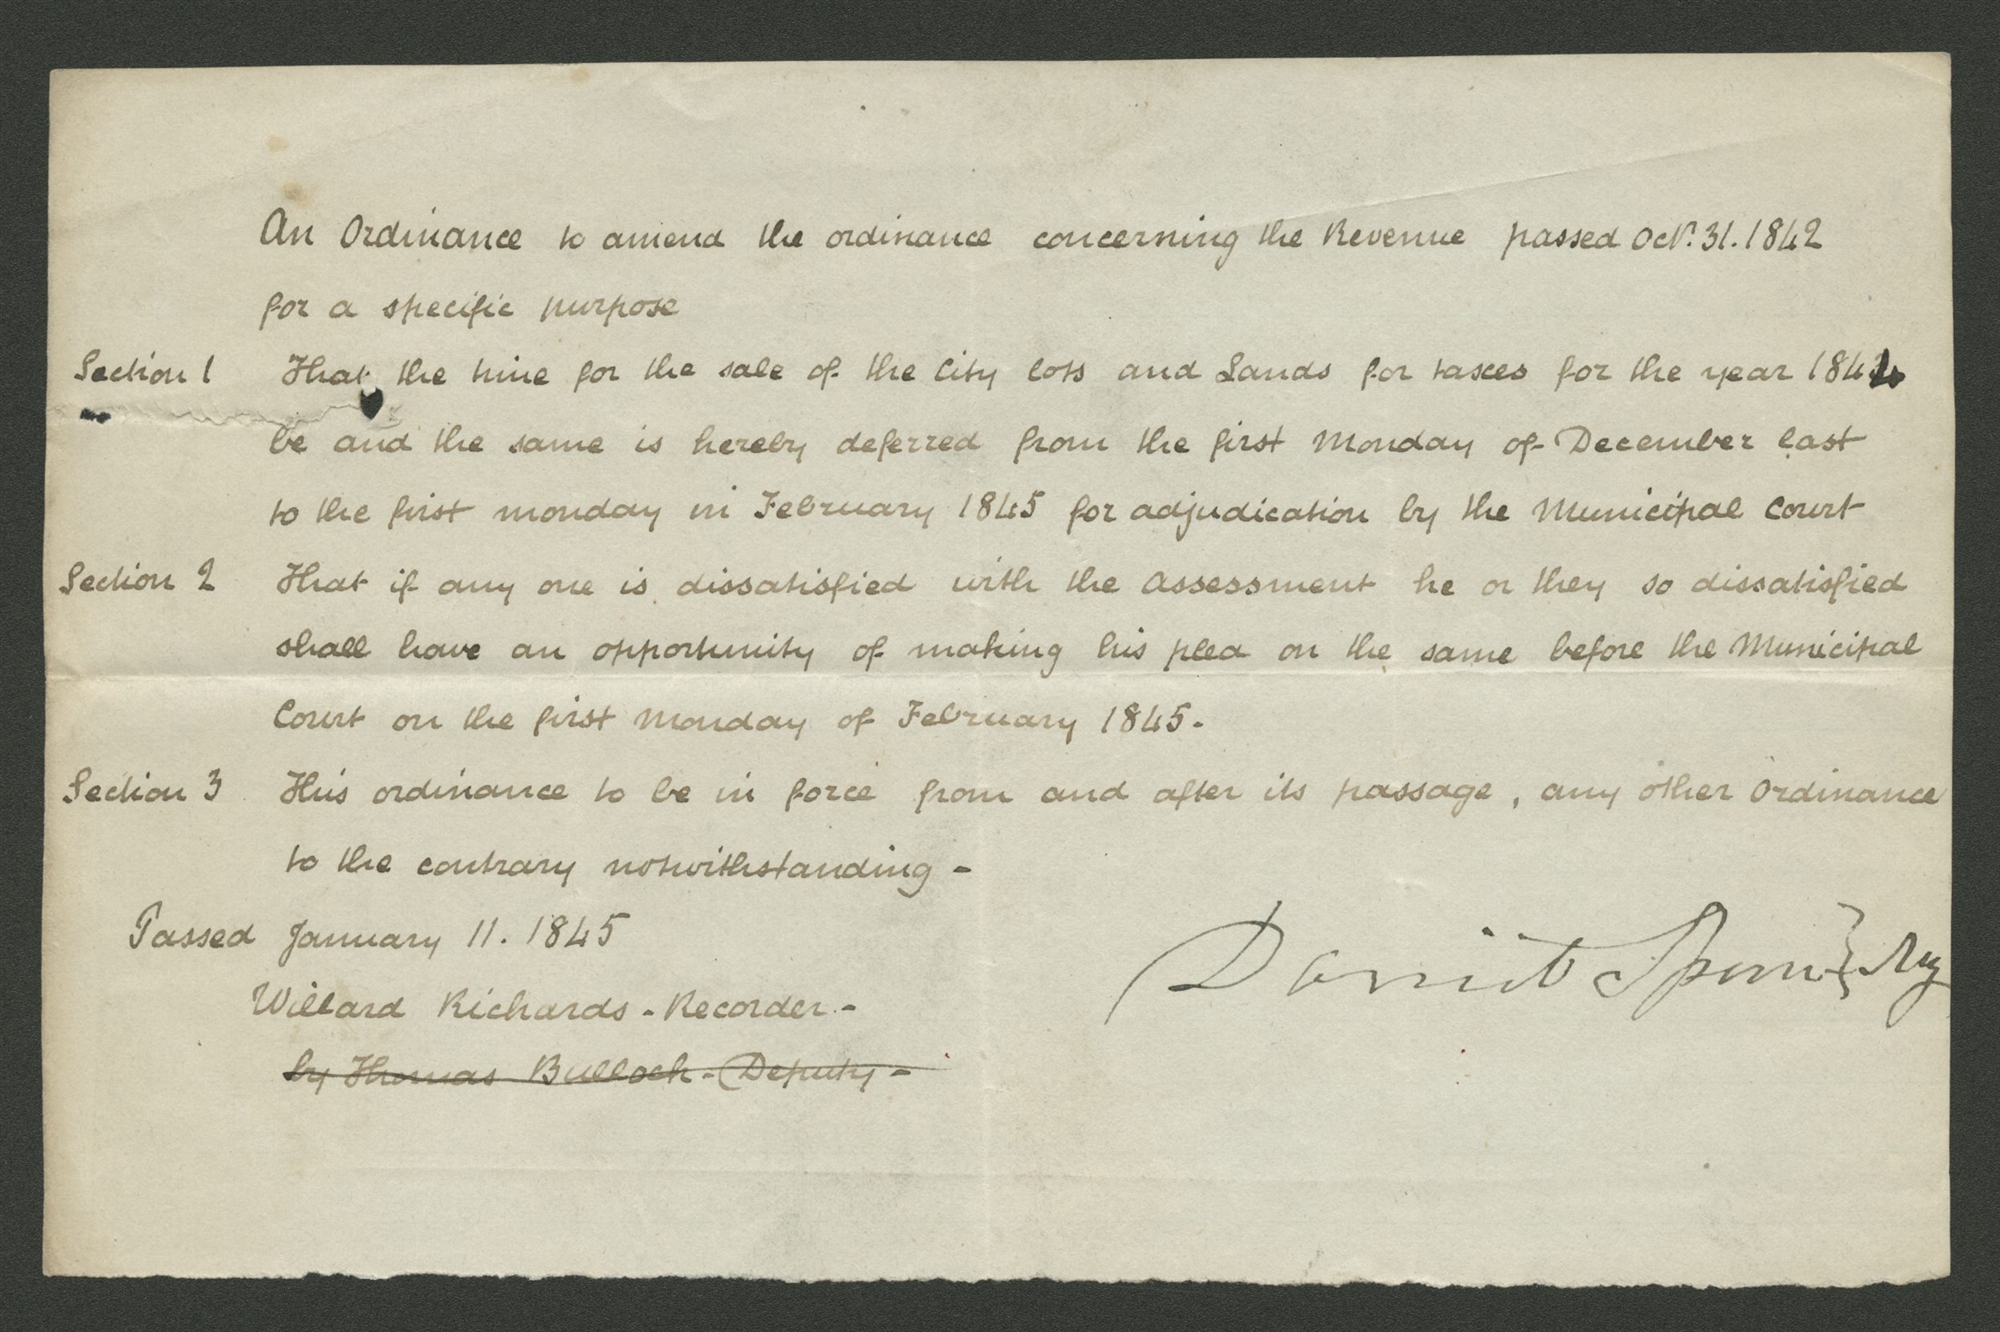 An Ordinance to amend the ordinance concerning the Revenue passed Oct. 31. 1842
for a specific purpose
Section 1 That the time for the sale of the City lots and Lands for taxes for the year 1844
be and the same is hereby deferred from the first Monday of December last
to the first monday in February 1845 for adjudication by the Municipal Court
Section 2 That if any one is dissatisfied with the assessment he or they so dissatisfied
shall have an opportunity of making his plea on the same before the Municipal
Court on the first Monday of February 1845.
Section 3 This ordinance to be in force from and after its passage, any other Ordinance
to the contrary notwithstanding -
Passed January 11. 1845
Willard Richards - Recorder. -
by Thomas Bullock - Deputy -
Daniel Spencer